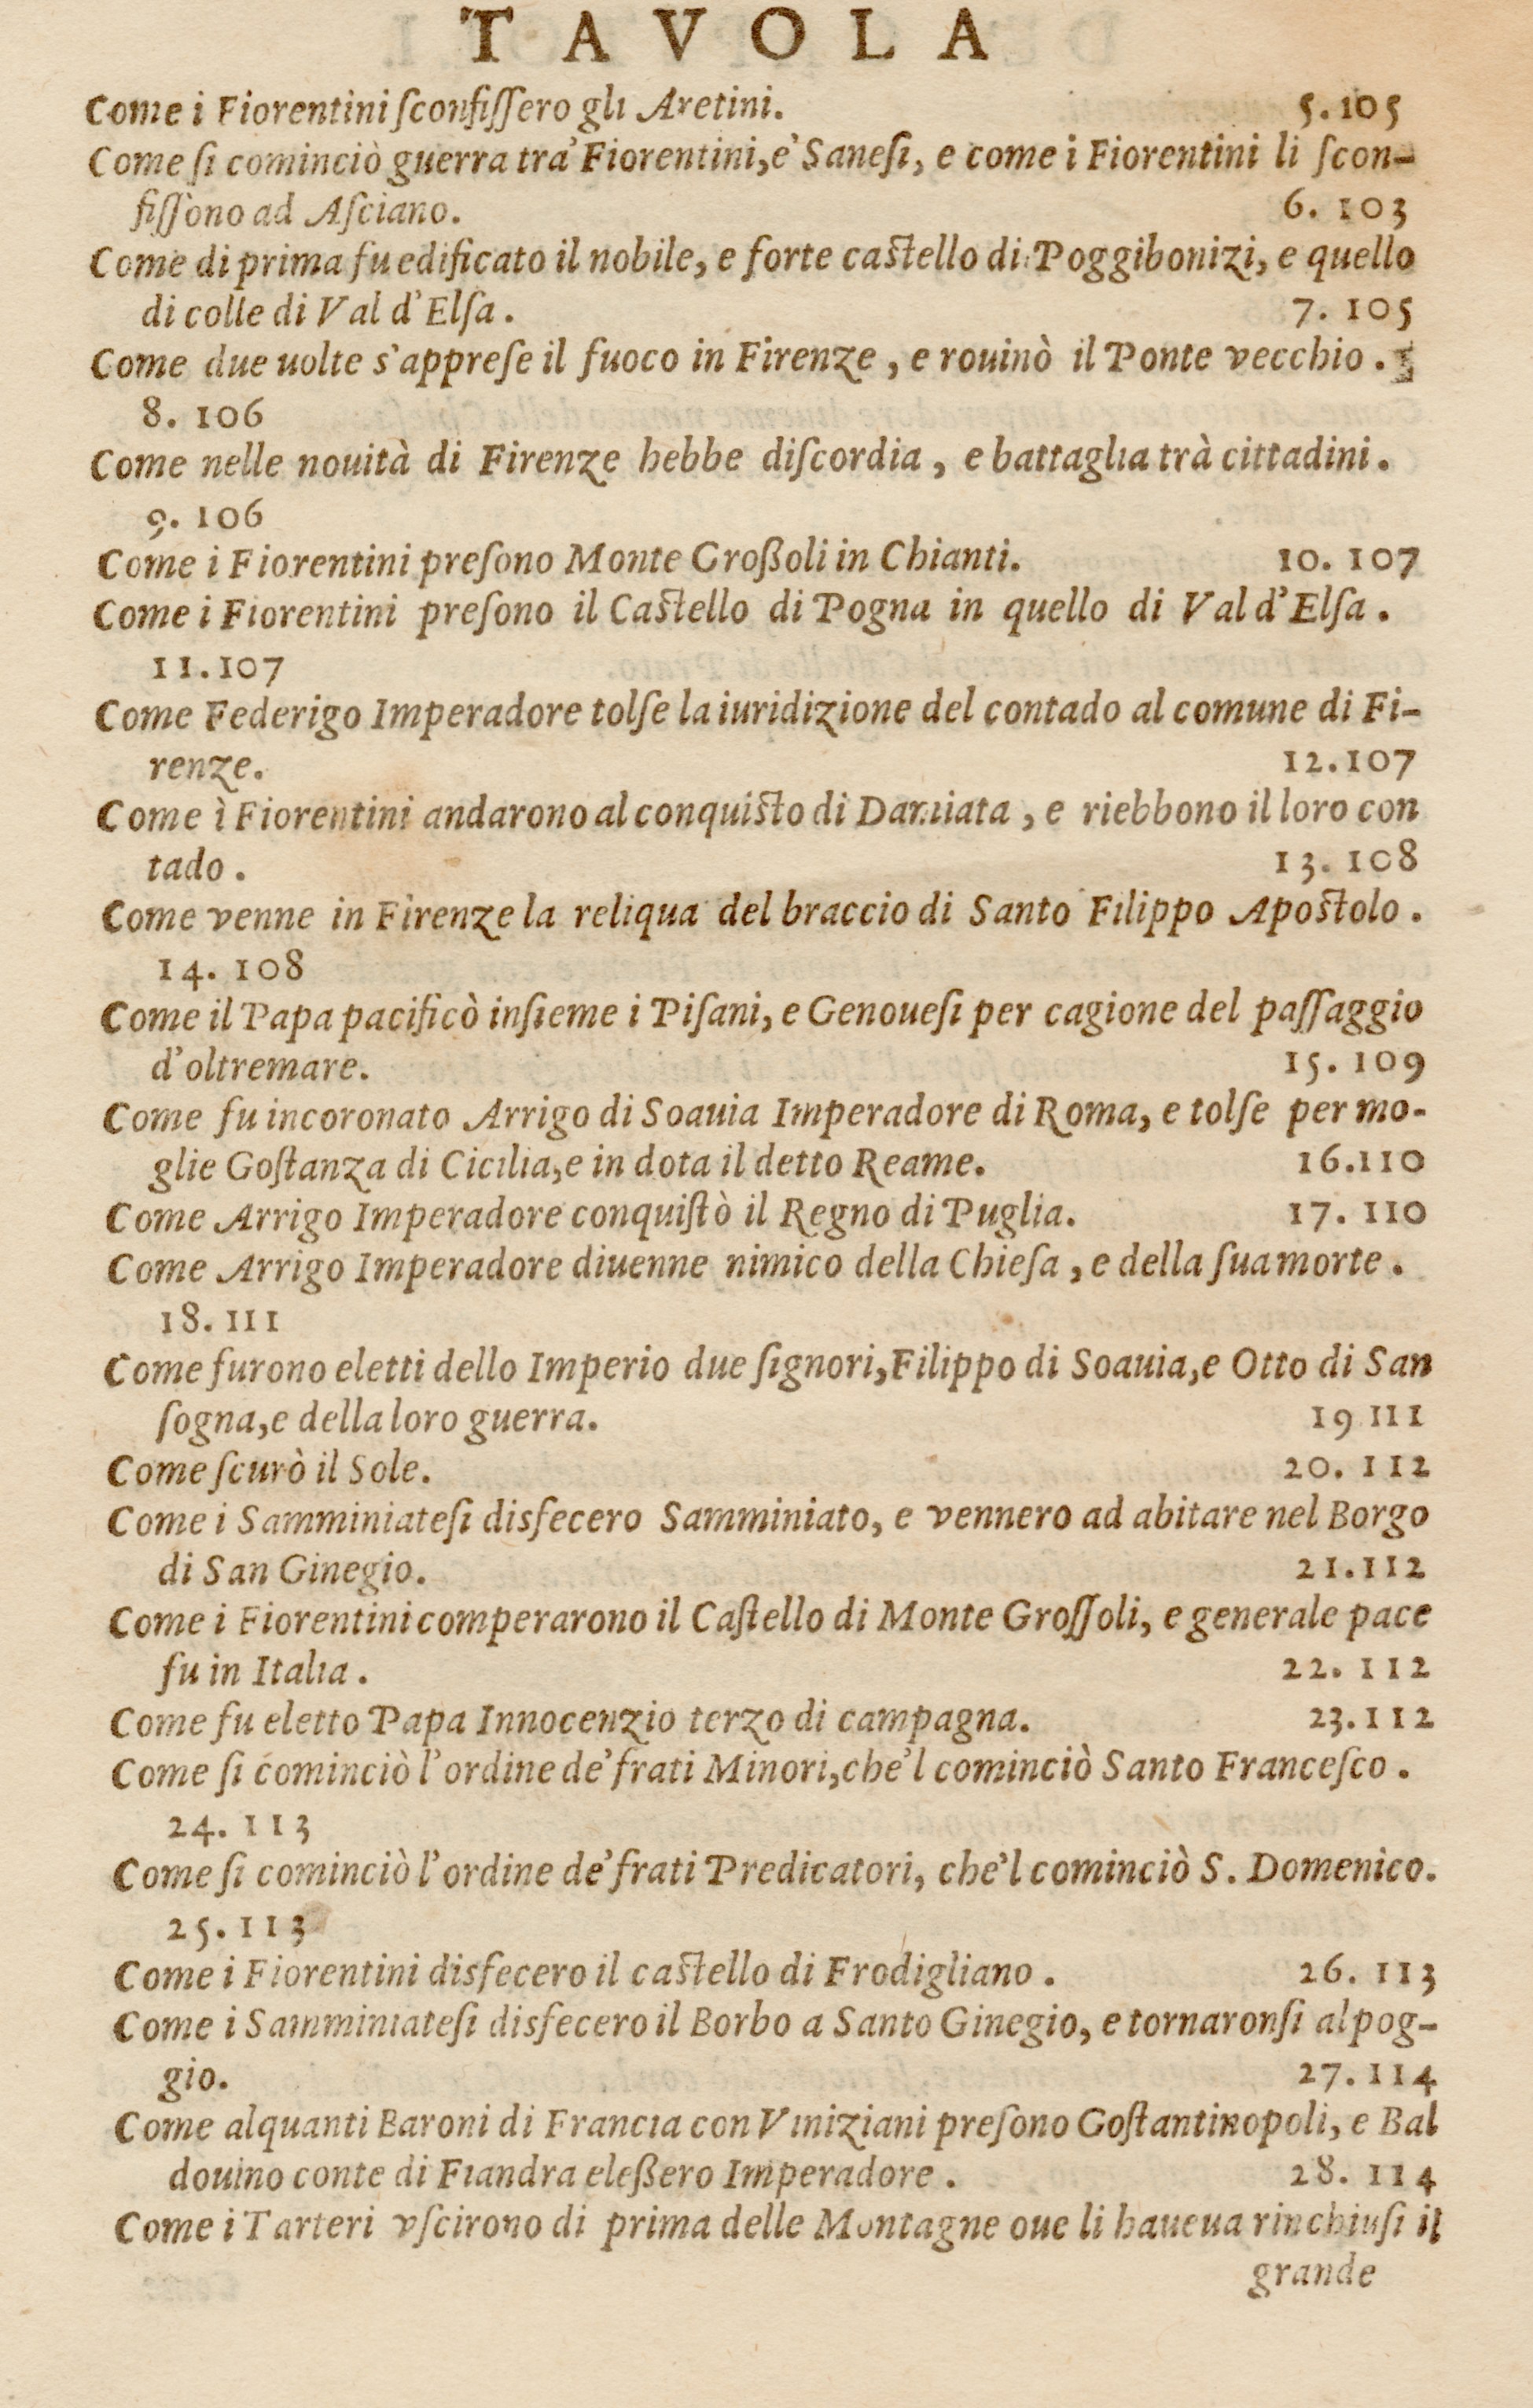 TAVOLA
Come i Fiorentini ſconfiſſero gli Aretini. 5.105
Come ſi cominciò guerra tra' Fiorentini,e' Saneſi, e come i Fiorentini li ſcon-
fiſſono ad Aſciano. 6. 103
Come di prima fu edificato il nobile, e forte caſtello di Poggibonizi, e quello
di colle di Val d'Elſa. 7. 105
Come due uolte s'appreſe il fuoco in Firenze, e rouinò il Ponte vecchio.
8. 106
Come nelle nouità di Firenze hebbe diſcordia, e battaglia trà cittadini.
9. 106
Come i Fiorentini preſono Monte Großoli in Chianti. 10. 107
Come i Fiorentini preſono il Caſtello di Pogna in quello di Val d'Elſa.
11.107
Come Federigo Imperadore tolſe la iuridizione del contado al comune di Fi-
renze. 12.107
Come ì Fiorentini andarono al conquiſto di Damiata, e riebbono il loro con
tado. 13. 108
Come venne in Firenze la reliqua del braccio di Santo Filippo Apoſtolo.
14. 108
Come il Papa pacificò inſieme i Piſani, e Genoueſi per cagione del paſſaggio
d'oltremare. 15. 109
Come fu incoronato Arrigo di Soauia Imperadore di Roma, e tolſe per mo-
glie Goſtanza di Cicilia,e in dota il detto Reame. 16.110
Come Arrigo Imperadore conquiſtò il Regno di Puglia. 17. 110
Come Arrigo Imperadore diuenne nimico della Chieſa, e della ſua morte.
18. 111
Come furono eletti dello Imperio due ſignori,Filippo di Soauia,e Otto di San
ſogna,e della loro guerra. 19 111
Come ſcurò il Sole. 20. 112
Come i Samminiateſi disfecero Samminiato, e vennero ad abitare nel Borgo
di San Ginegio. 21.112
Come i Fiorentini comperarono il Caſtello di Monte Groſſoli, e generale pace
fu in Italia. 22. 112
Come fu eletto Papa Innocenzio terzo di campagna. 23.112
Come ſi cominciò l'ordine de' frati Minori,che'l cominciò Santo Franceſco.
24. 113
Come ſi cominciò l'ordine de' frati Predicatori, che'l cominciò S. Domenico.
25. 113
Come i Fiorentini disfecero il caſtello di Frodigliano. 26. 113
Come i Samminiateſi disfecero il Borbo a Santo Ginegio, e tornaronſi al pog-
gio. 27. 114
Come alquanti Baroni di Francia con Viniziani preſono Goſtantinopoli, e Bal
douino conte di Fiandra eleßero Imperadore. 28. 114
Come i Tarteri vſcirono di prima delle Montagne oue li haueua rinchiuſi il
grande